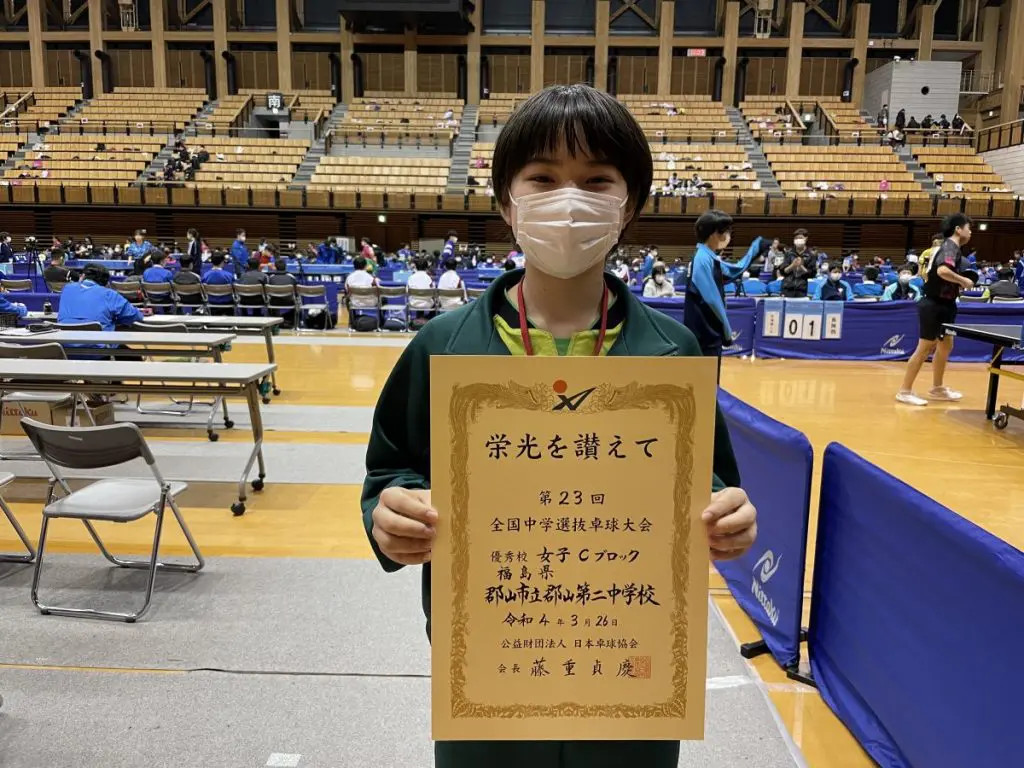 南
01
Nittaku
Nittaku
栄光を讃えて
第23回
全国中学選抜卓球大会
優秀校 女子 Cブロック
福島県
郡山市立郡山第二中学校
令和 4 年 3 月 26 日
公益財団法人 日本卓球協会
会長 藤重貞慶
Nittaku